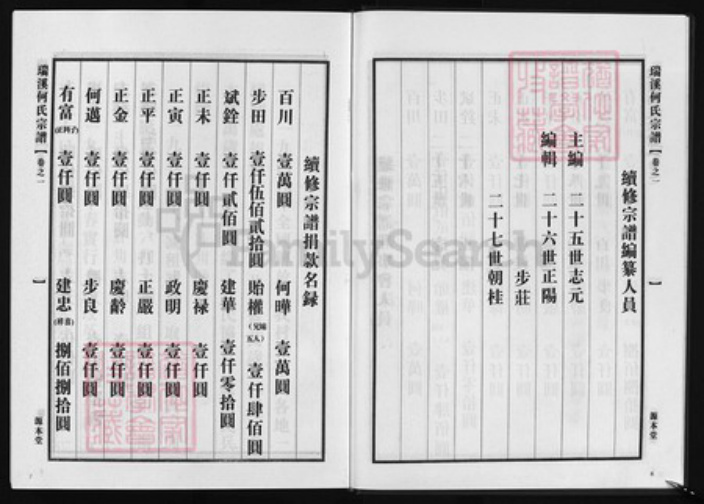 瑞溪何氏宗譜
卷之一
續修宗譜編纂人員
主編 二十五世志元
編輯 二十六世正陽
步莊
二十七世朝桂
源本堂
續修宗譜捐款名録
百川 壹萬圓 何曄 壹萬圓
步田 壹仟伍佰貳拾圓 貽權 壹仟肆佰圓
斌銓 壹仟貳佰圓 建華 壹仟零拾圓
正未 壹仟圓 慶禄 壹仟圓
正寅 壹仟圓 政明 壹仟圓
正平 壹仟圓 正嚴 壹仟圓
正金 壹仟圓 慶齡 壹仟圓
何邁 壹仟圓 步良 壹仟圓
有富 壹仟圓 建忠 捌佰捌拾圓
瑞溪何氏宗譜
卷之一
源本堂
FamilySearch